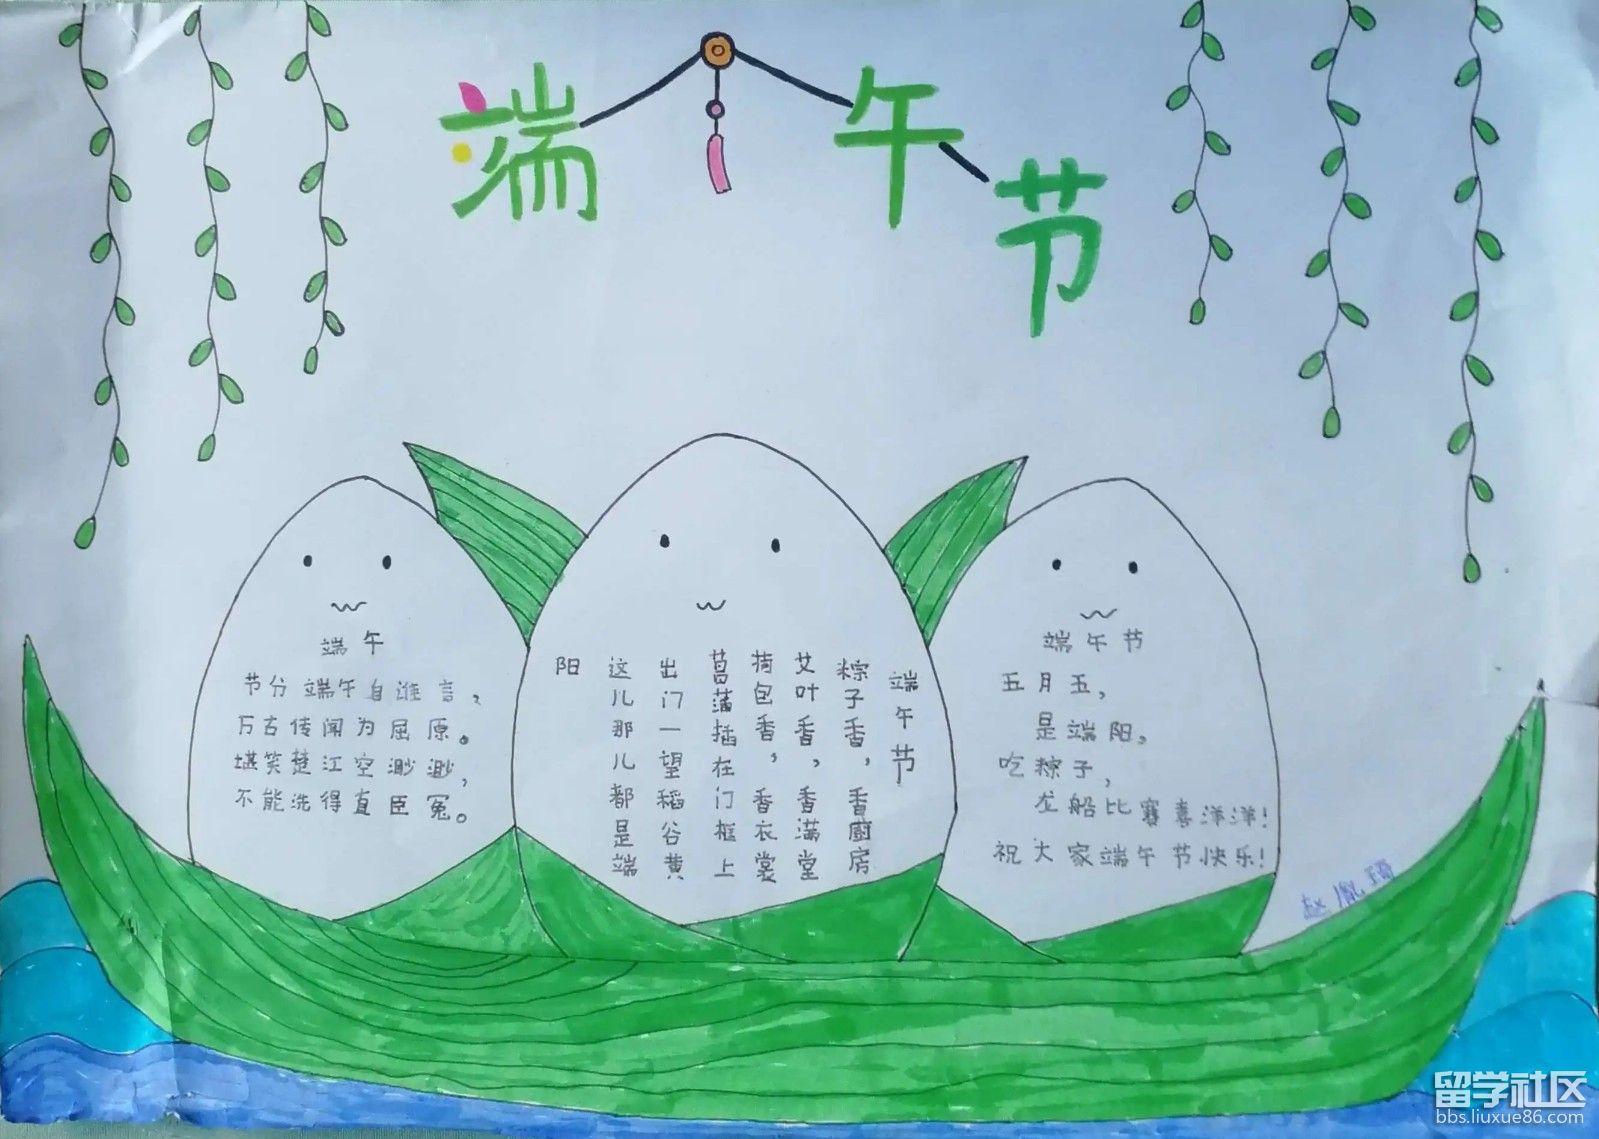 端午节
端午
节分端午自谁言，
万古传闻为屈原。
堪笑楚江空渺渺，
不能洗得直臣冤。
端午节
粽子香，香厨房
艾叶香，香满堂
荷包香，香衣裳
菖蒲插在门框上
出门一望稻谷黄
这儿那儿都是端
阳
端午节
五月五，
是端阳。
吃粽子，
龙船比赛喜洋洋！
祝大家端午节快乐！
留学社区
bbs.liuxue86.com